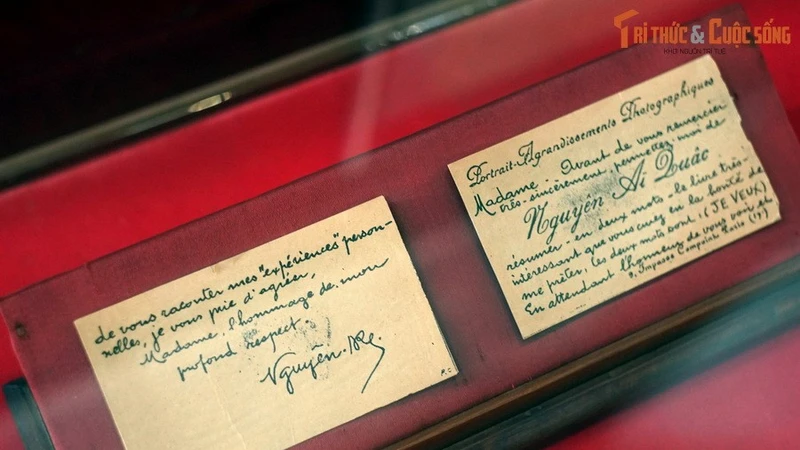 TRI THỨC & CUỘC SỐNG
KHƠI NGUỒN TRI THỨC
Portrait-Agrandissements Photographiques
Madame, Avant de vous remercier
très-sincèrement, permettez moi de
Nguyên Aï Quâc
résumer - en deux mots - le livre très-
intéressant que vous avez eu la bonté de
me prêter. Ces deux mots sont: (JE VEUX)
En attendant l'honneur de vous voir et
9, Impasse Compoint Paris (17)
de vous raconter mes "expériences" person-
nelles, je vous prie d'agréer,
Madame, l'hommage de mon
profond respect.
Nguyên